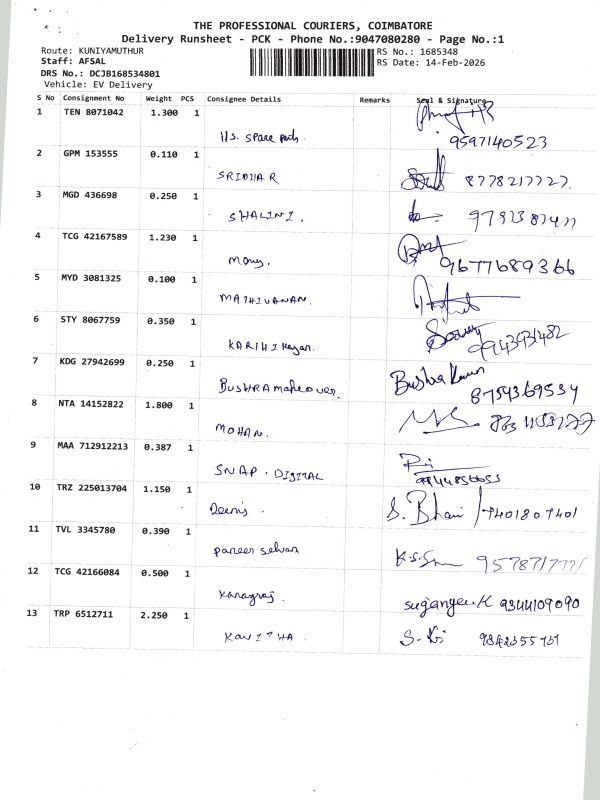 THE PROFESSIONAL COURIERS, COIMBATORE
Delivery Runsheet - PCK - Phone No.:9047080280 - Page No.:1
Route: KUNIYAMUTHUR RS No.: 1685348
Staff: AFSAL RS Date: 14-Feb-2026
DRS No.: DCJB168534801
Vehicle: EV Delivery
S No Consignment No Weight PCS Consignee Details Remarks Seal & Signature
1 TEN 8071042 1.300 1
spare parts. 9597140523
2 GPM 153555 0.110 1
SRIDHAR
3 MGD 436698 0.250 1
SHALINI.
4 TCG 42167589 1.230 1
Mony. 9677689366
5 MYD 3081325 0.100 1
MATHIVANAN.
6 STY 8067759 0.350 1
KARTHIKeyan. 9943931482
7 KDG 27942699 0.250 1 Bushra
BUSHRA makeover. 8754369534
8 NTA 14152822 1.800 1
MOHAN.
9 MAA 712912213 0.387 1
SNAP. DIGITAL
10 TRZ 225013704 1.150 1
S. /7401807401
11 TVL 3345780 0.390 1
panneer selvan
12 TCG 42166084 0.500 1
Kanagraj. 9344109090
13 TRP 6512711 2.250 1
KAVITHA. 9842355737